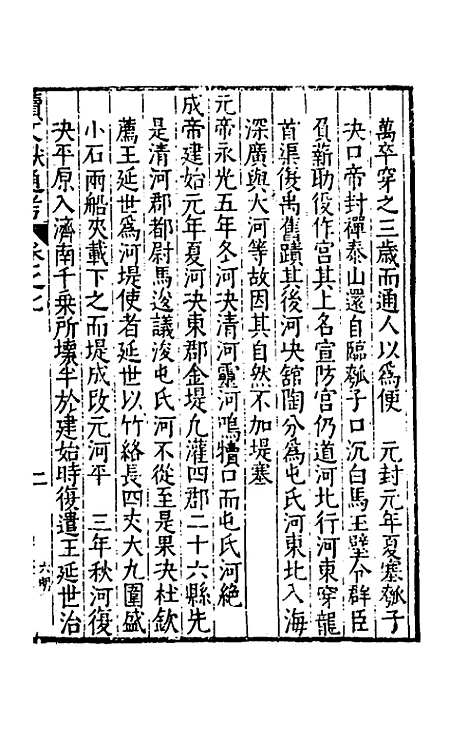 萬卒穿之三歲而通人以爲便　元封元年夏塞瓠子
決口帝封禪泰山還自臨瓠子口沉白馬王璧令群臣
負薪助役作宮其上名宣防宮仍道河北行河東穿龍
首渠復禹舊蹟其後河決舘陶分爲屯氏河東北入海
深廣與大河等故因其自然不加堤塞
元帝永光五年冬河決清河靈河鳴犢口而屯氏河絶
成帝建始元年夏河決東郡金堤九灌四郡二十六縣先
是清河郡都尉馬逡議浚屯氏河不從至是果決杜欽
薦王延世爲河堤使者延世以竹絡長四丈大九圍盛
小石兩船夾載下之而堤成改元河平　三年秋河復
決平原入濟南千乗所壊半於建始時復遣王延世治
續文獻通考　卷之七　二